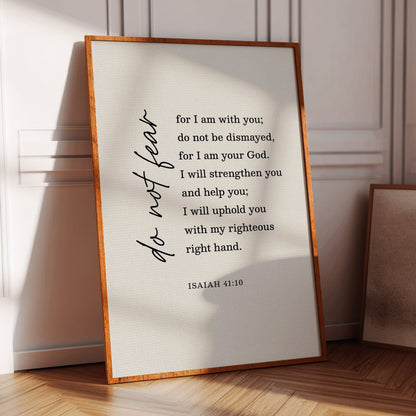 do not fear
for I am with you;
do not be dismayed,
for I am your God.
I will strengthen you
and help you;
I will uphold you
with my righteous
right hand.
ISAIAH 41:10